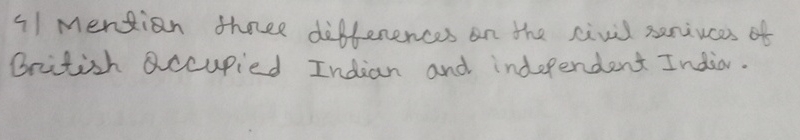 4) Mention three differences on the civil serivces of
British Occupied Indian and independent India.